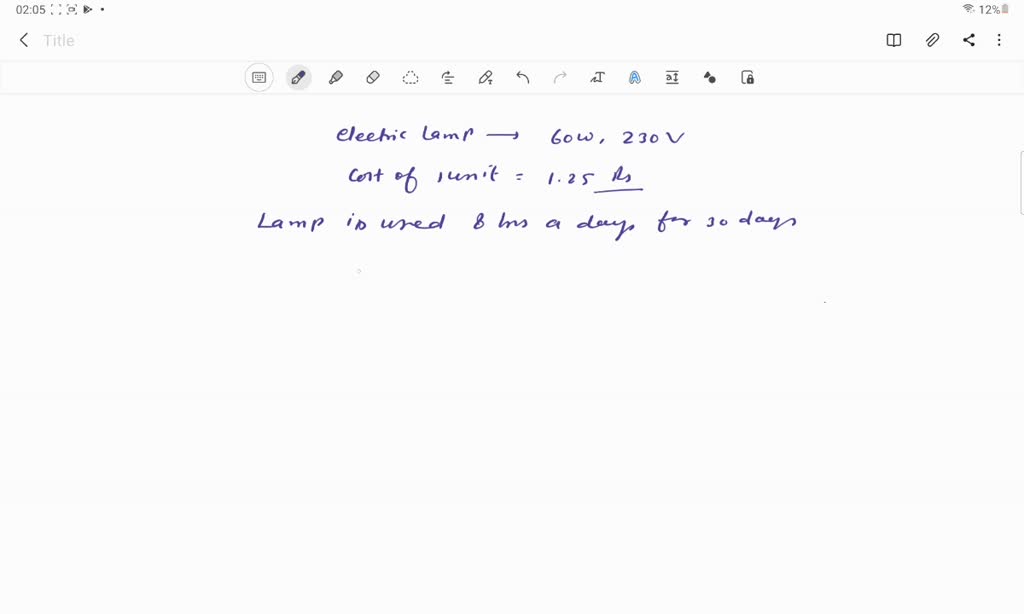 02:05 12%
Title
electric Lamp → 60W, 230 V
Cost of 1 unit = 1.25 Rs
Lamp is used 8 hrs a days for 30 days